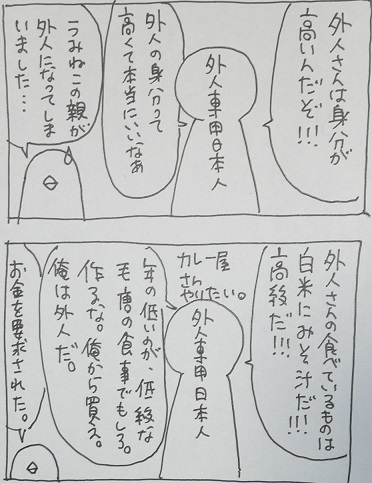 外人さんは身分が
高いんだぞ!!!
外人専用日本人
外人の身分って
高くて本当にいいなあ
うみねこの親が
外人になってしま
いました…
外人さんの食べているものは
白米にみそ汁だ!!!
高級だ!!!
カレー屋
さん
やりたい。
外人専用日本人
年の低いのが、低級な
毛唐の食事でもしろ。
作るな。俺から買え。
俺は外人だ。
お金を要求された。